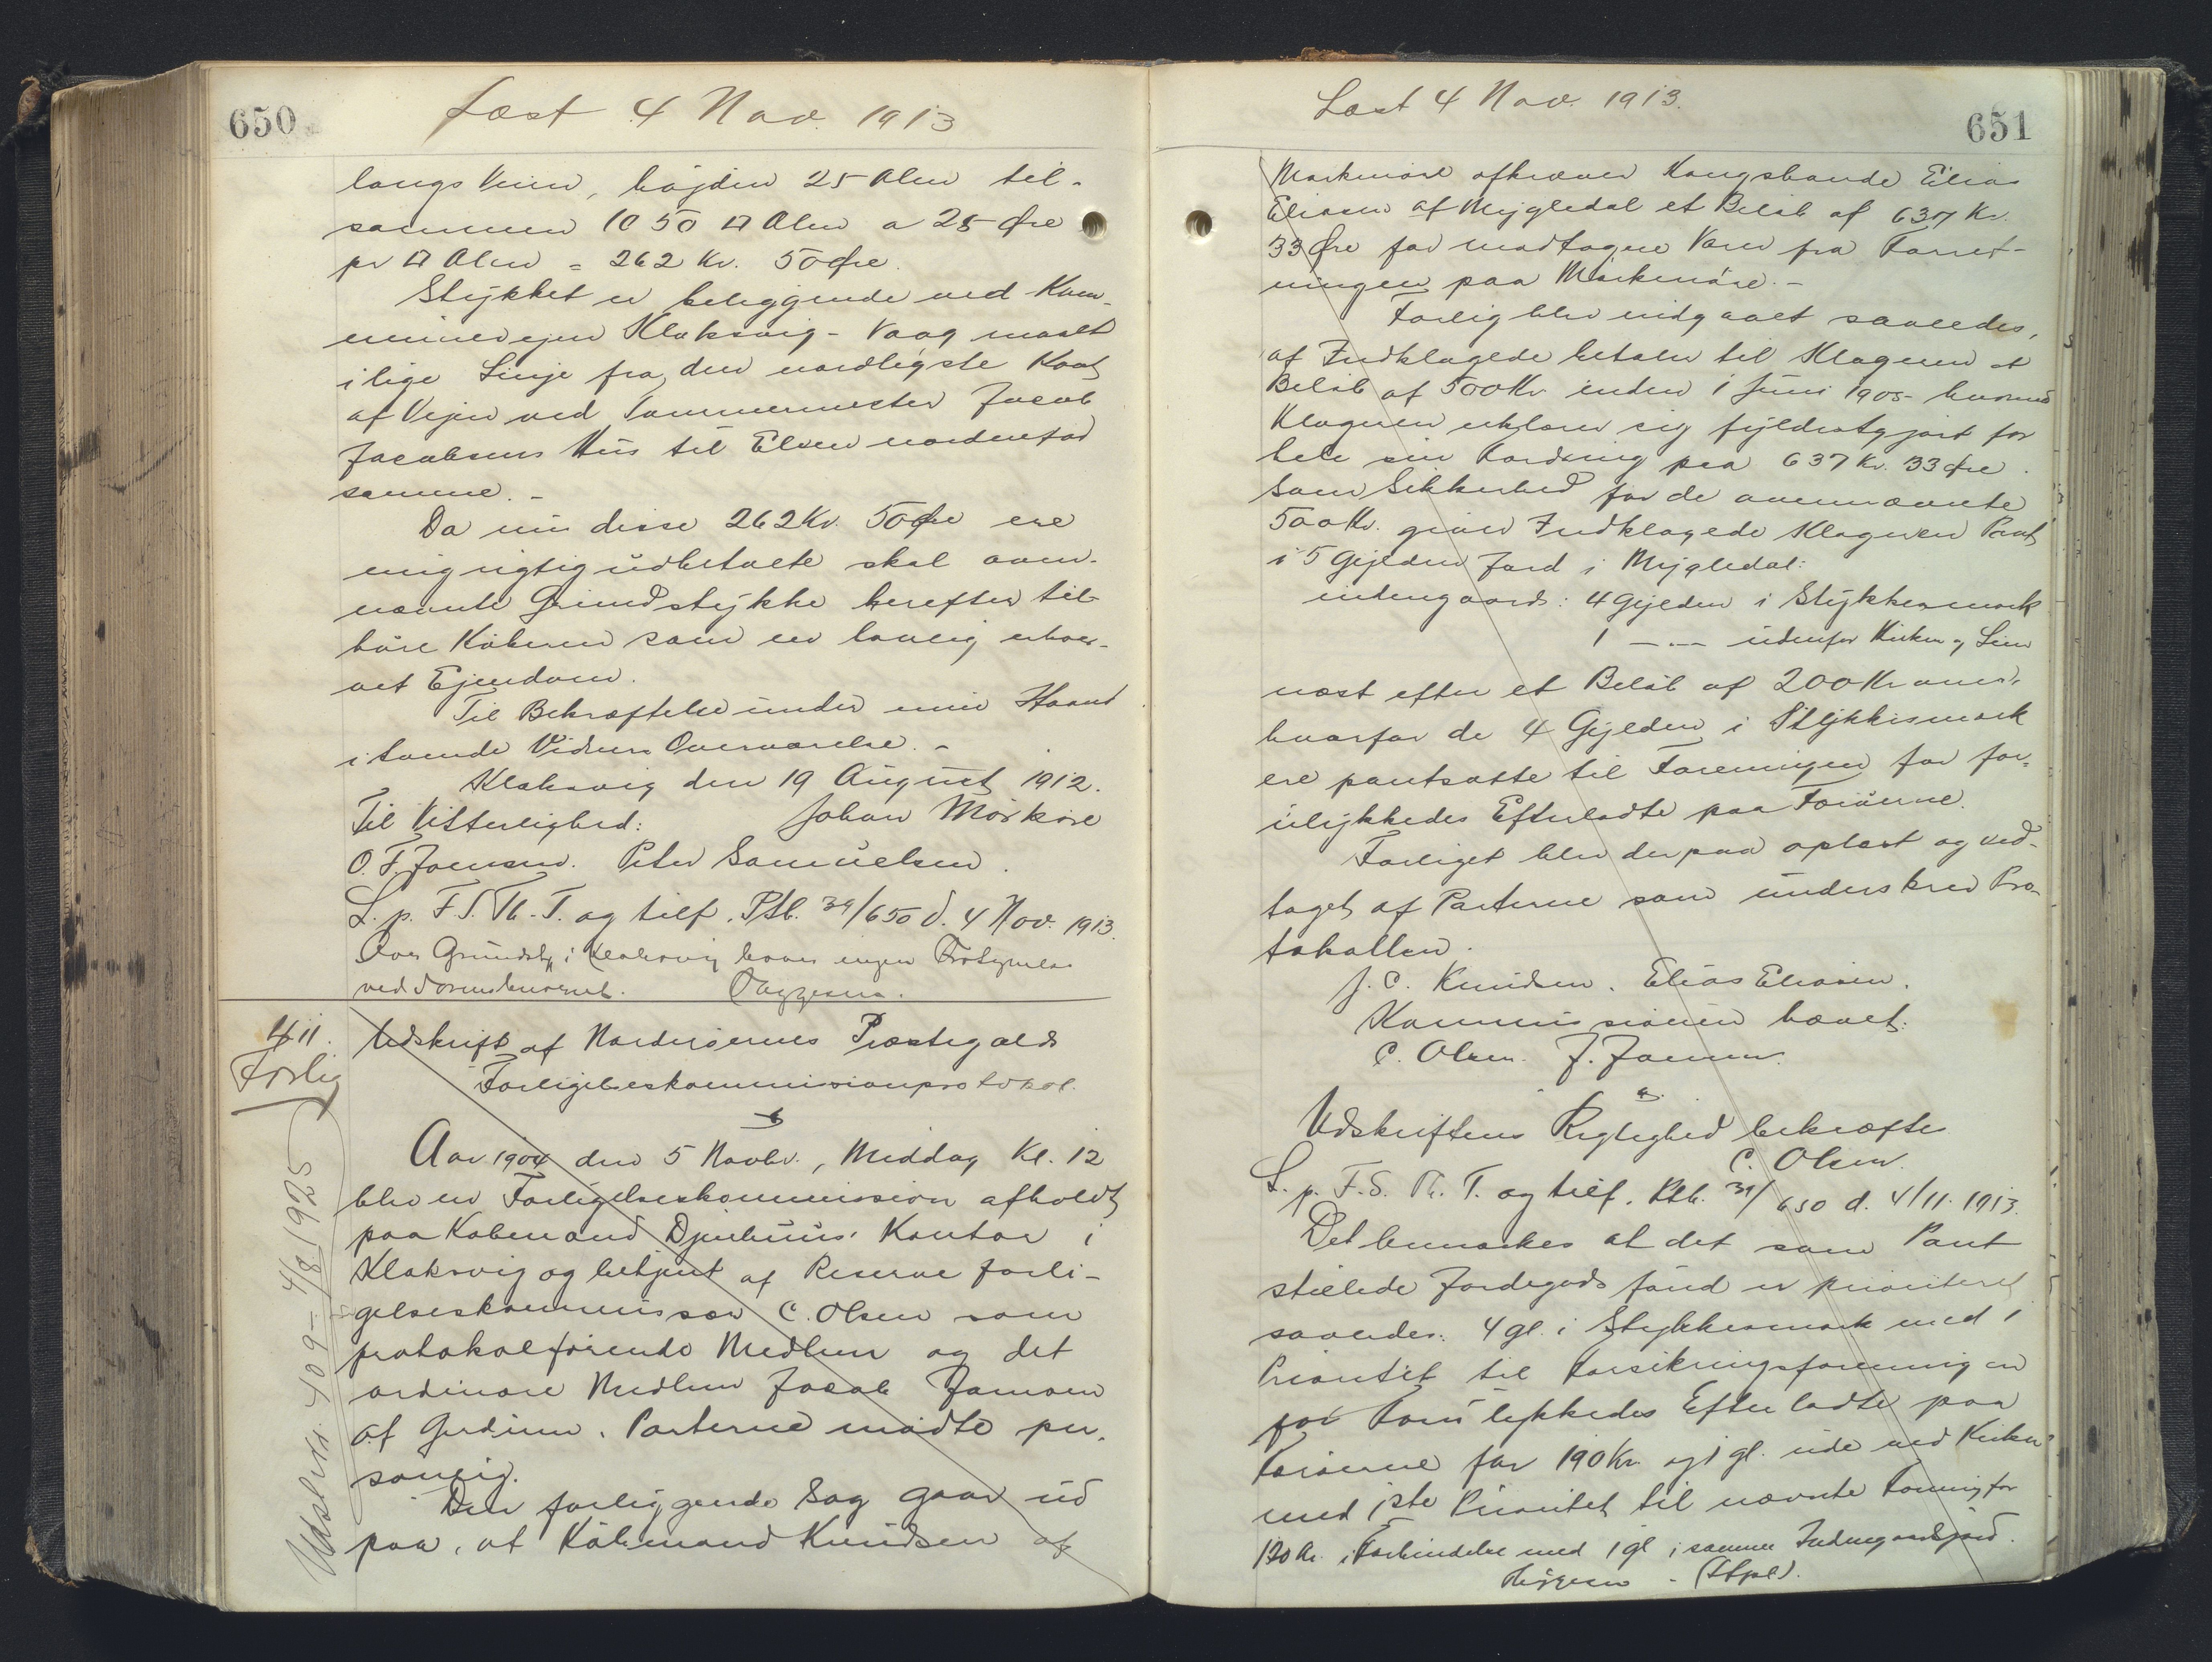 650
Læst 4 Nov. 1913
langs Veien, höjden 25 Alen til-
sammen 1050 □ Alen a 25 Øre
pr □ Alen = 262 Kr. 50 Øre.
Stykket er beliggende ved Kom-
munevejen Klaksvig - Vaag maalt
i lige Linje fra den nordligste Kant
af Vejen ved Tømmermester Jacob
Jacobsens Hus til Elven nordenfor
samme. -
Da nu disse 262 Kr. 50 Øre ere
mig rigtig udbetalte skal oven-
nævnte Grundstykke herefter til-
höre Köberen som en lovlig erhver-
vet Ejendom.
Til Bekræftelse under min Haand
i tvende Vidners Overværelse. -
Klaksvig den 19 August 1912.
Til Vitterlighed: Johan Mörköre
O. F. Joensen. Peter Samuelsen.
L. p. F. S. Th. T. og tilf. Ptb. 39/650 d. 4 Nov. 1913.
Over Grundst. i Klaksvig haves ingen
ved Sorenskriveriet.
411.
Forlig
Udslettet 409 - 4/8 1925
Udskrift af Norderøernes Præstegjælds
Forligelseskommissionprotokol.
Aar 1904 den 5 Novbr., Middag Kl. 12
blev en Forligelseskommission afholdt
paa Købmand Djurhuus' Kontor i
Klaksvig og betjent af Reserve forli-
gelseskommissær C. Olsen som
protokolförende Medlem og det
ordinære Medlem Jacob Joensen
af Gerdum. Parterne mödte per-
sonlig.
Den forliggende Sag gaar ud
paa, at Köbmand Knudsen af
Læst 4 Nov. 1913.
651
Mørkenöre afkræver Kongsbonde Elias
Eliasen af Mygledal et Belöb af 637 Kr.
33 Øre for modtagne Varer fra Forret-
ningen paa Mörkenöre. -
Forlig blev indgaaet saaledes,
at Indklagede betaler til Klageren et
Belöb af 500 Kr inden 1 Juni 1905 hvormed
Klageren erklærer sig fyldestgjort for
hele sin Fordring paa 637 Kr. 33 Øre.
Som Sikkerhed for de ovennævnte
500 Kr. giver Indklagede Klageren Pant
i 5 Gylden Jord i Mygledal:
indengaards: 4 Gylden i Stykkesmark
1 -..- udenfor Kirken og Lein
næst efter et Belöb af 200 Kr
hvorfor de 4 Gylden i Stykkismark
ere pantsatte til Foreningen for for-
ulykkedes Efterladte paa Færöerne.
Forliget blev derpaa oplæst og ved-
taget af Parterne som underskrev Pro-
tokollen.
J. C. Knudsen. Elias Eliasen.
Kommissionen hævet.
C. Olsen. J. Joensen.
Udskriftens Rigtighed bekræfter
C. Olsen.
L. p. F. S. Th. T. og tilf. Ptb. 39/650 d. 4/11. 1913.
Det bemærkes at det som Pant
stillede Jordegods fand er prioriteret
saaledes: 4 gl. i Stykkesmark med 1
Prioritet til Forsikringsforeningen
for Forulykkedes Efterladte paa
Færöerne for 190 Kr og 1 gl. ude ved Kirken
med 1ste Prioritet til nævnte Forening for
120 Kr. i Forbindelse med 1 gl i samme Indengaardsjord.